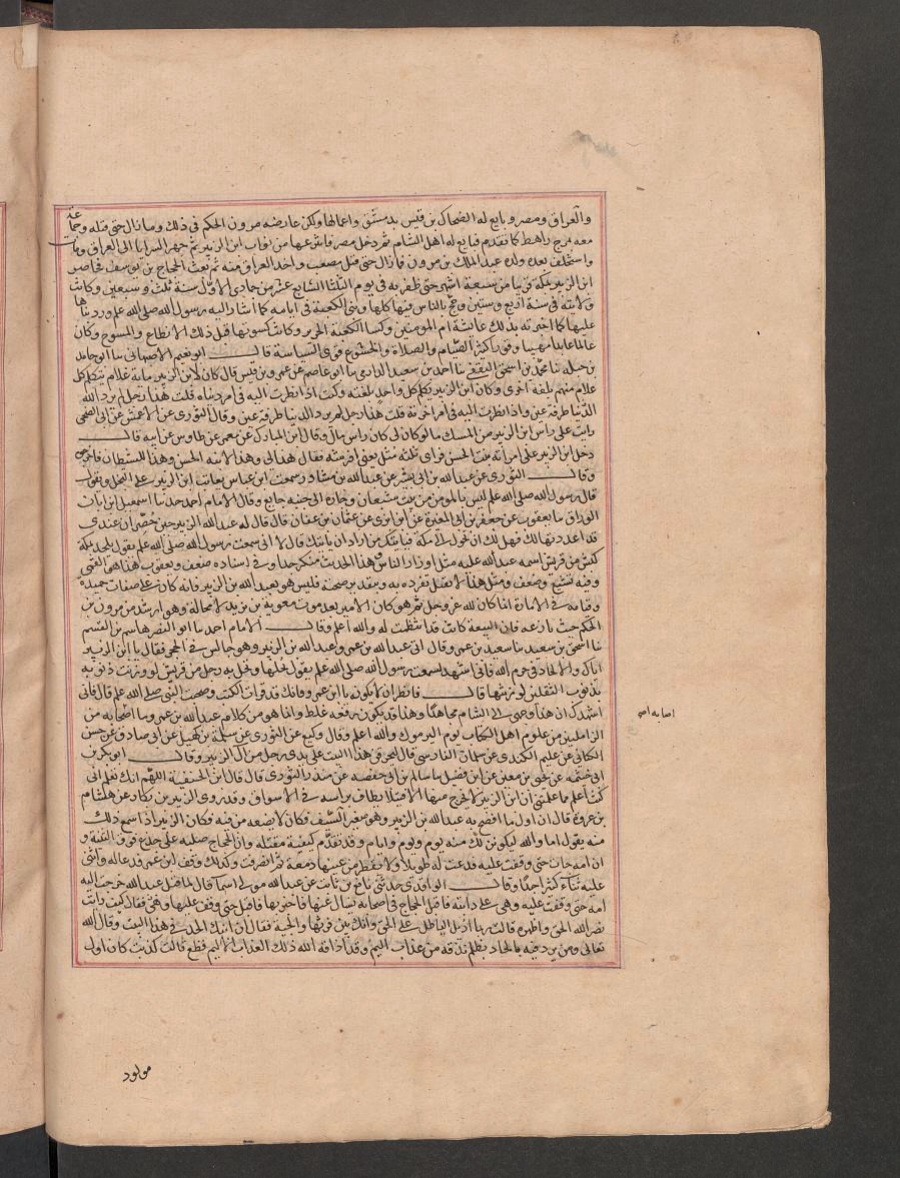 والعراق ومصر وبايع له الضحاك بن قيس بدمشق واعمالها ولكن عارضه مروان الحكم في ذلك وما زال حتى قتله وجماعة
معه بمرج راهط كما تقدم فبايع له اهل الشام ثم دخل مصر فانتزعها من نواب ابن الزبير ثم جهز السرايا الى العراق ومات
واستخلف بعده ولده عبد الملك بن مرون فما زال حتى قتل مصعب واخذ العراق منه ثم بعث الحجاج بن يوسف فحاصر
ابن الزبير بمكة قريبا من سبعة اشهر حتى ظفر به في يوم الثلثا السابع عشر من جمادى الاول سنة ثلث وسبعين وكانت
ولايته في سنة اربع وستين وحج بالناس فيها كلها وبنى الكعبة في ايامه كما أشار اليه رسول الله صلى الله علم وردبناها
عليها كما اخبرته بذلك عائشة ام المومنين وكسا الكعبة الحرير وكانت كسوتها قبل ذلك الانطاع والمسوح وكان
عالما عابدا مهيبا وقورا كثير الصيام والصلاة والخشوع قوى السياسة قال ابو نعيم الاصبهاني سا ابو حامد
بن جبلة ثنا محمد بن اسحق الثقفي ثنا احمد بن سعيد الدارمي ثنا ابو عاصم عن عمر بن قيس قال كان لابن الزبير ماية غلام يتكلم كل
غلام منهم بلغة اخرى وكان ابن الزبير يكلم كل واحد بلغته وكنت اذا نظرت اليه في امر دنياه قلت هذا رجل لم يرد الله
الدنيا طرفة عين واذا نظرت اليه في امر اخرته قلت هذا رجل لم يرد الدنيا طرفة عين وقال الثوري عن الاعمش عن ابي الضحى
رايت على راس ابن الزبير من المسك ما لو كان لى كان راس مال وقال ابن المبارك عن معمر عن طاوس عن ابيه قال
دخل ابن الزبير على امراته بنت الحسن فراى ثلثة مثل يعني افرشة فقال هذا لي وهذا لابنة الحسن وهذا للشيطان فاخرجوه
وقال الثوري عن عبد الله بن ابي بشر عن عبد الله بن مشاور سمعت ابن عباس يعاتب ابن الزبير على البخل ويقول
قال رسول الله صلى الله علم ليس بالمومن من يبيت شبعان وجاره الى جنبه جايع وقال الامام احمد حدثنا اسمعيل ابن ابان
الوراق ثنا يعقوب عن جعفر بن ابي المغيرة عن ابن ابزى عن عثمان بن عفان قال قال له عبد الله الزبير حين حُصِر ان عندي
قد اعددتها لك فهل لك ان تحول الى مكة فياتيك من اراد ان ياتيك قال لا انى سمعت رسول الله صلى الله علم يقول يلحد بمكة
كبش من قريش اسمه عبد الله عليه مثل اوزار الناس وهذا الحديث منكر جدا وفي اسناده ضعف ويعقوب هذا هو القمي
وفيه تشيع وضعف ومثل هذا لا يقبل تفرده به وبتقدير صحته فليس هو بعبد الله بن الزبير فانه كان على صفات حميدة
وقيامه في الامارة انما كان لله عز وجل ثم هو كان الامير بعد موت معوية بن يزيد لا محالة وهو ارشد من مرون بن
الحكم حيث نازعه فان البيعة كانت قد انتظمت له والله أعلم وقال الامام احمد ثنا ابو النضر هاشم بن القسم
ثنا اسحق بن سعيد ثنا سعيد بن عمرو قال اتى عبد الله بن عمرو عبد الله بن الزبير وهو جالس في الحجر فقال يا ابن الزبير
اياك والالحاد في حرم الله فانى اشهد لسمعت رسول الله صلى الله علم يقول يحلها ويحل به رجل من قريش لو وزنت ذنوبه
بذنوب الثقلين لوزنتها قال فانظر ان لا يكون يا ابن عمرو فانك قد قرات الكتب وصحبت النبي صلى الله علم قال فانى
اشهدك ان هذا وجهى الى الشام مجاهدًا وهذا قد يكون رفعه غلط وانما هو من كلام عبد الله بن عمرو وما اصابه من
الزاملتين من علوم اهل الكتاب يوم اليرموك والله اعلم وقال وكيع عن الثوري عن سلمة بن كهيل عن ابي صادق عن حبش
الكناني عن عليم الكندي عن سلمان الفارسي قال ليحرقن هذا البيت على يدى رجل من ال الزبير وقال ابو بكر بن
ابى خيثمة عن يحيى بن معين عن ابن فضيل ثنا سالم بن ابي حفصة عن منذر الثوري قال قال ابن الحنفية اللهم انك تعلم انى
كنت أعلم مما علمتنى أن ابن الزبير لا يخرج منها الا قتيلا يطاف براسه في الاسواق وقد روى الزبير بن بكار عن هشام
بن عروة قال ان اول ما افصح به عبد الله بن الزبير وهو صغير السيف فكان لا يضعه من فيه فكان الزبير اذا سمع ذلك
منه يقول اما والله ليكونن لك منه يوم ويوم وايام وقد تقدم كيفية مقتله وان الحجاج صلبه على جذع فوق الثنية و
ان امه جات حتى وقفت عليه فدعت له طويلا ولا يقطر من عينها دمعة ثم انصرفت وكذلك وقف ابن عمر فدعا له واثنى
عليه ثناء كثيرا جدًا وقال الواقدي حدثني نافع بن ثابت عن عبد الله مولى اسما قال لما قتل عبد الله خرجت اليه
امه حتى وقفت عليه وهي على دابته فاقبل الحجاج في اصحابه يسال عنها فاخبروا بها فاقبل حتى وقف عليها وهي فقال كيف رايت
نصر الله الحق واظهره قالت ربما اديل الباطل على الحق وانك بين فرثها والجية فقال ان ابنك الحد في هذا البيت وقال الله
تعالى ومن يرد فيه بالحاد بظلم نذقه من عذاب اليم وقد أذاقه الله ذلك العذاب الاليم قطع قالت كذبت كان اول
اصابه اصح
مولود